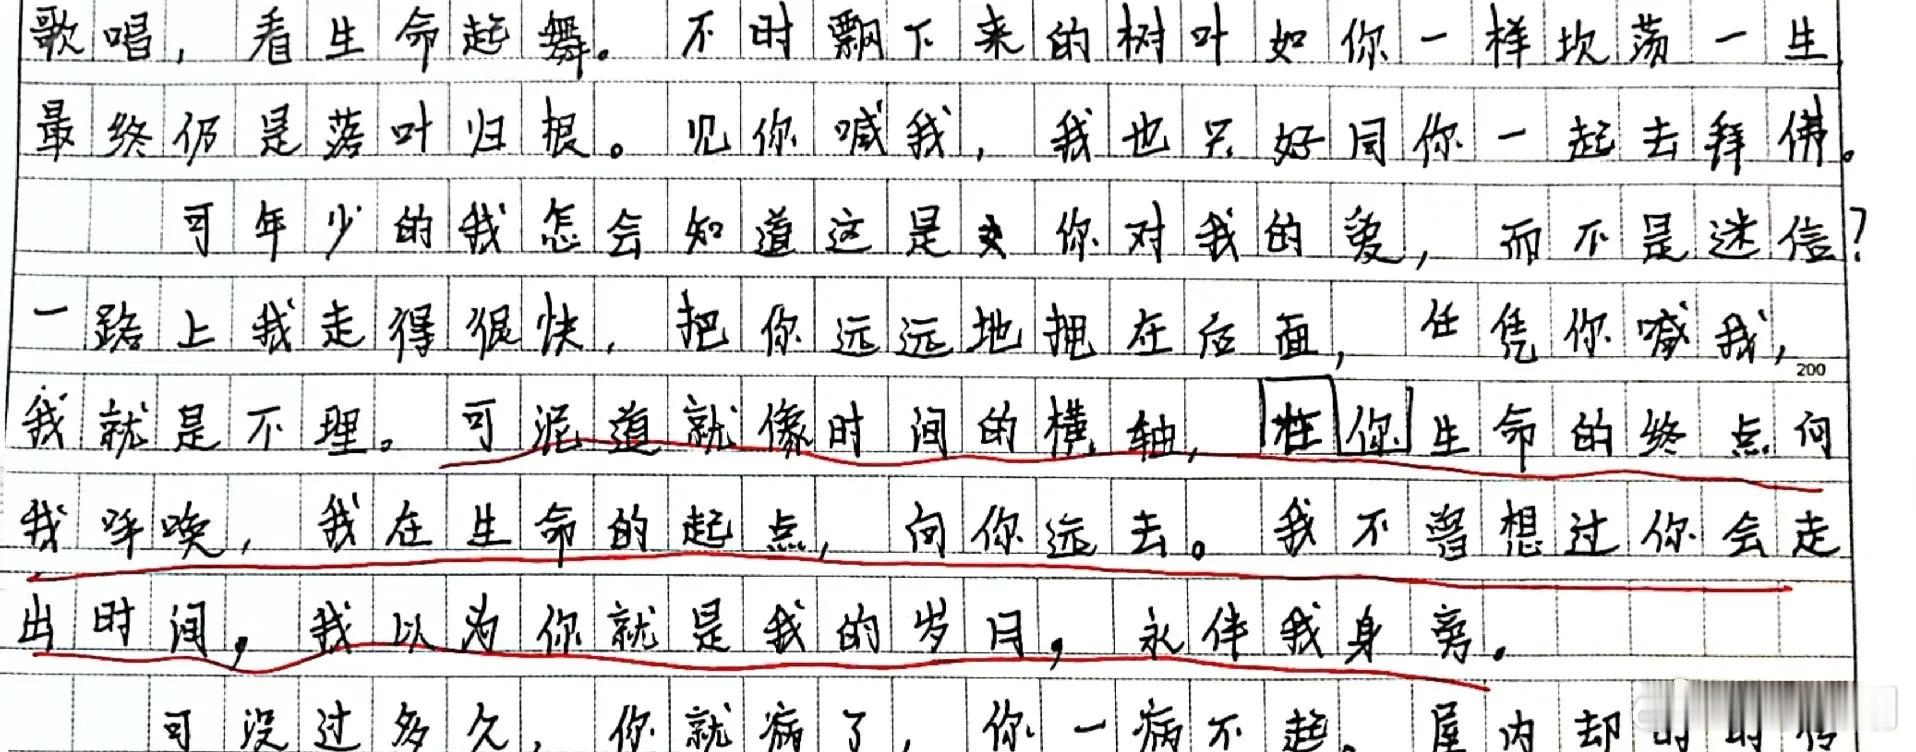 歌唱，看生命起舞。不时飘下来的树叶如你一样坎荡一生
最终仍是落叶归根。见你喊我，我也只好同你一起去拜佛。
可年少的我怎会知道这是你对我的爱，而不是迷信？
一路上我走得很快，把你远远地拥在后面，任凭你喊我，
200
我就是不理。可泥道就像时间的横轴，在你生命的终点向
我呼唤，我在生命的起点，向你远去。我不曾想过你会走
出时间，我以为你就是我的岁月，永伴我身旁。
可没过多久，你就病了，你一病不起。屋内却时时传